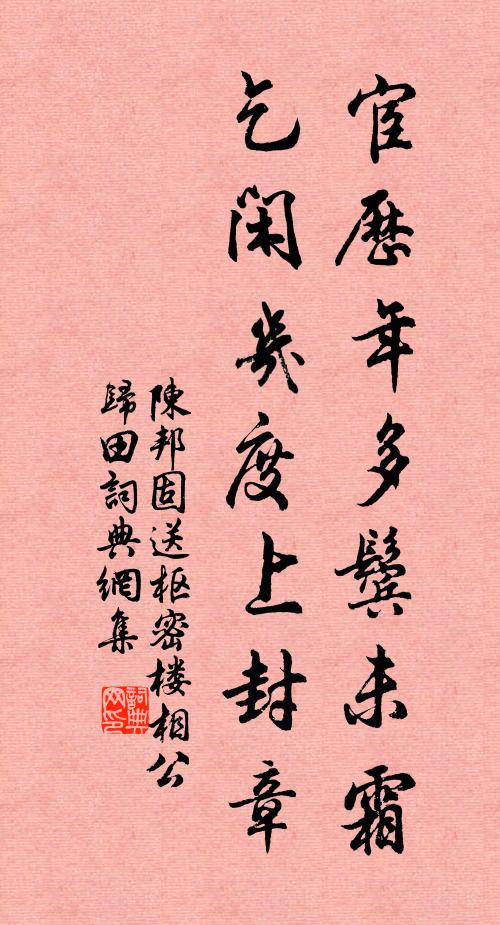 宦歷年多鬢未霜
乞閑幾度上封章
陳邦固送枢密楼相公
歸田詞典網集
詞典
网印